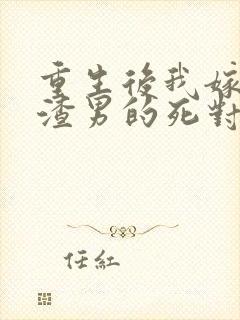 重生後我嫁
渣男的死對
任紅